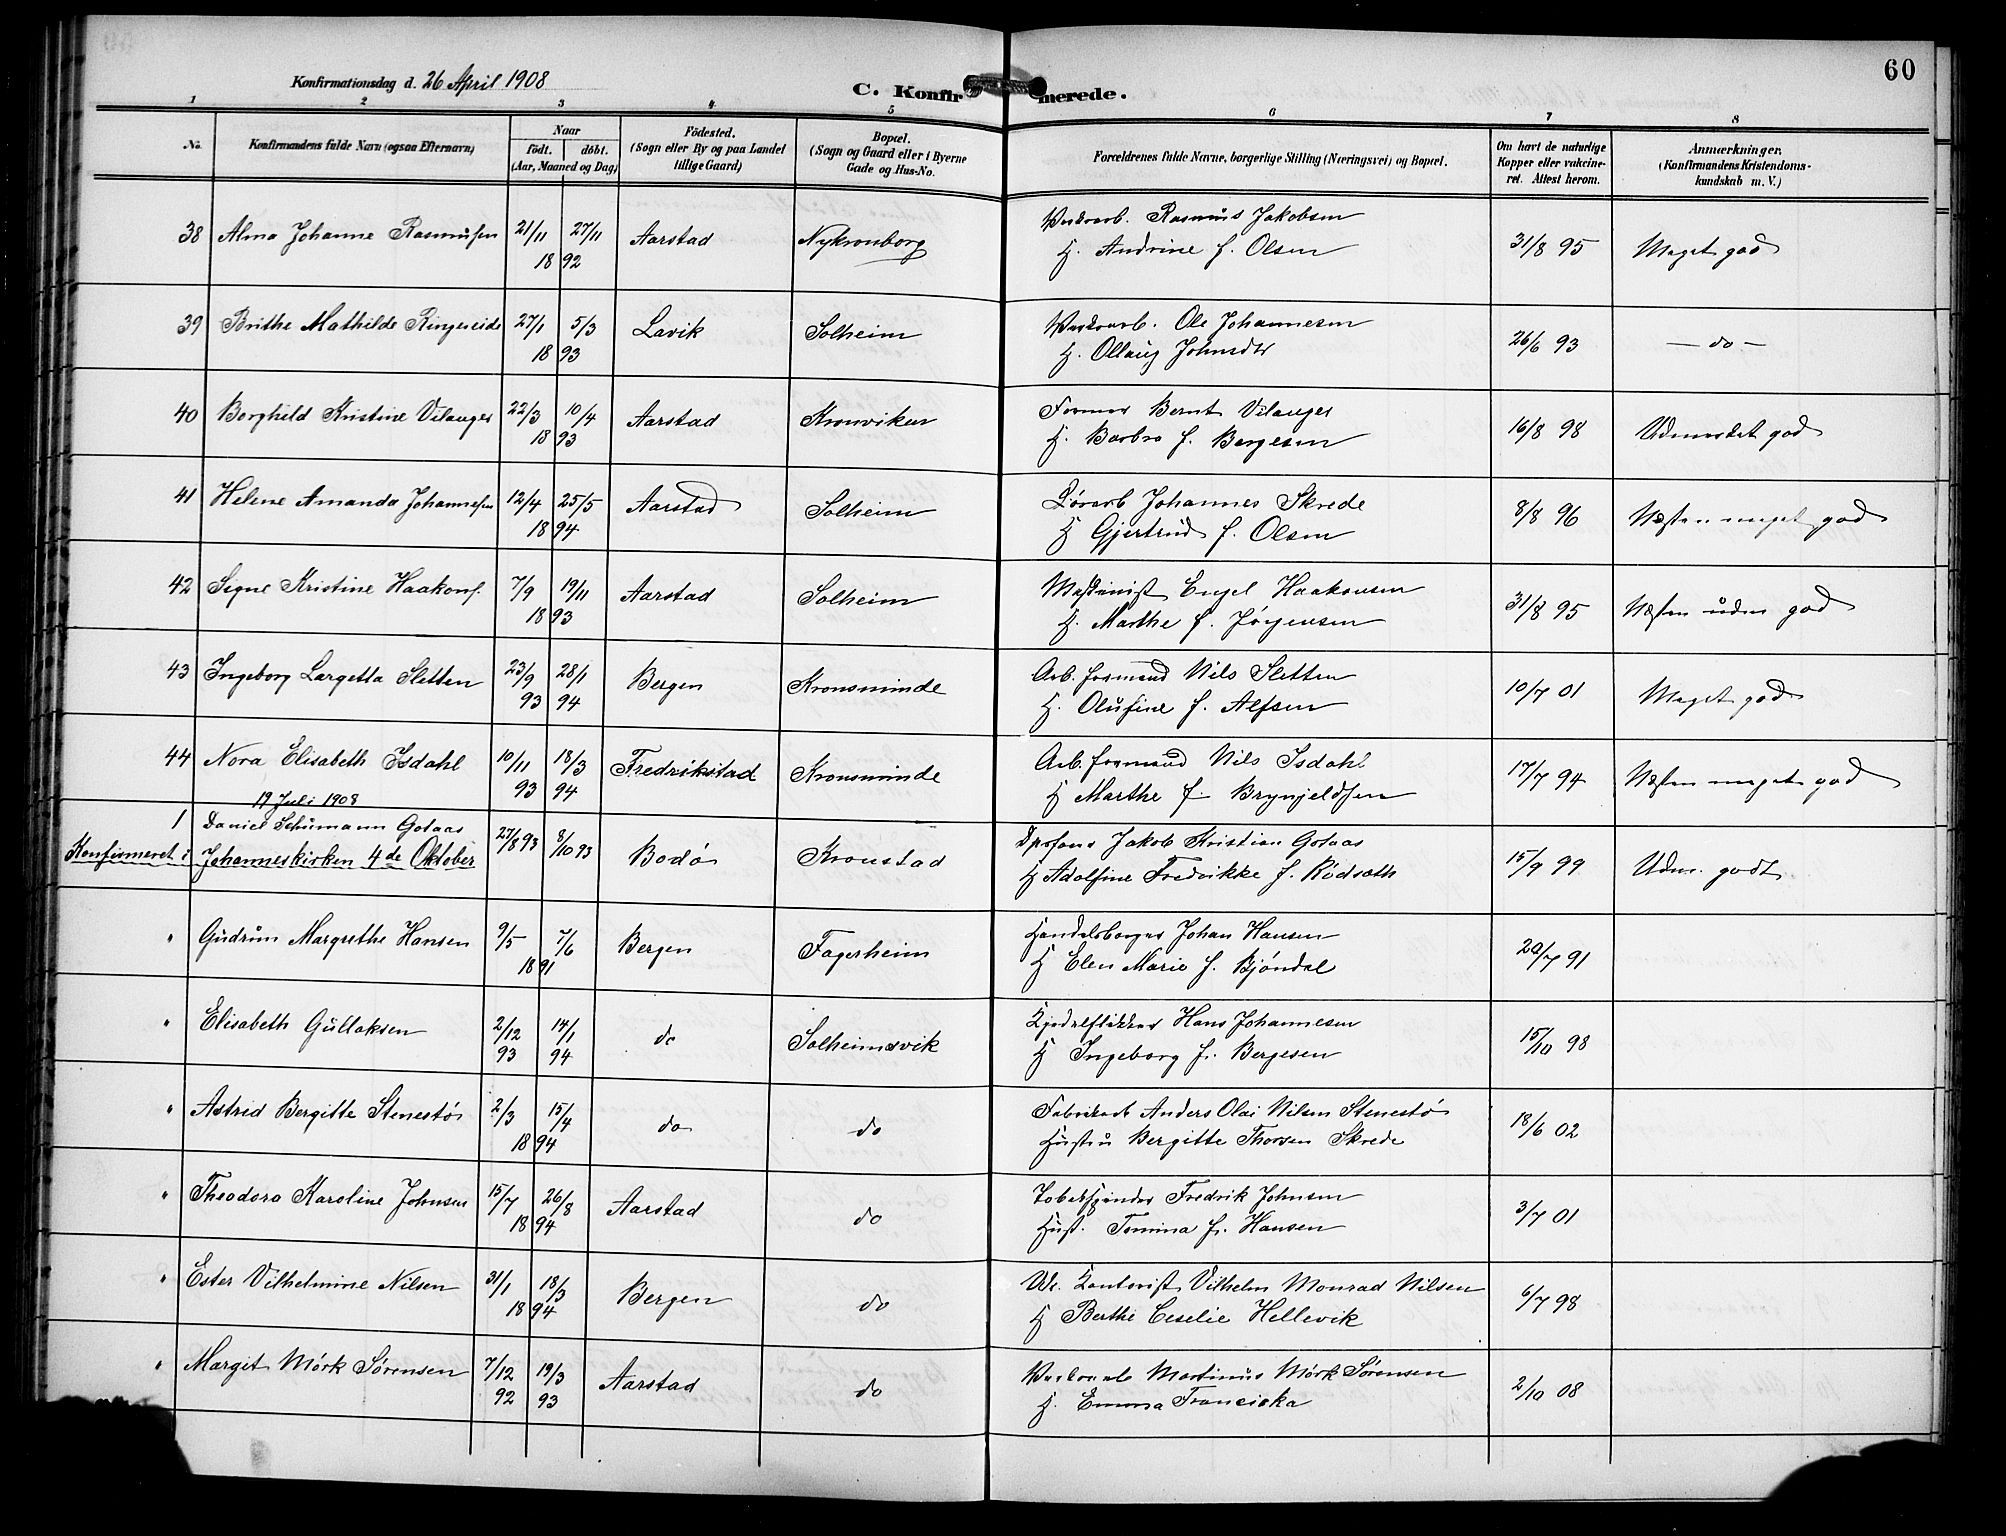 60
Konfirmationsdag d. 26 April 1908
C. Konfirmerede.
1 2 3 4 5 6 7 8
No. Konfirmandens fulde Navn (ogsaa Efternavn) Naar födt. döbt. (Aar, Maaned og Dag) Födested. (Sogn eller By og paa Landet tillige Gaard) Bopæl. (Sogn og Gaard eller i Byerne Gade og Hus-No. Forældrenes fulde Navne, borgerlige Stilling (Næringsvei) og Bopæl. Om havt de naturlige Kopper eller vakcineret. Attest herom. Anmærkninger. (Konfirmandens Kristendomskundskab m. V.)
38 Alma Johanne Rasmussen 21/11 27/11 1892 Aarstad Nykronborg Rasmus Jakobsen
H. Andrine f. Olsen 31/8 95 Meget god
39 Brithe Mathilde Ringereide 27/1 5/3 1893 Lavik Solheim Ole Johannesen
H. Ollaug Johnsdtr 26/6 93 – do –
40 Borghild Kristine Vilanger 22/3 10/4 1893 Aarstad Kronviken Former Bernt Vilanger
H. Barbro f. Børgesen 16/8 98 Udmerket god
41 Helene Amanda Johannesen 12/4 25/5 1894 Aarstad Solheim Johannes Skrede
H Gjertrud f. Olsen 8/8 96 Næsten meget god
42 Signe Kristine Haakons. 7/9 19/11 1893 Aarstad Solheim Maskinist Engel Haakonsen
H. Marthe f. Jørgensen 31/8 95 Næsten udm god
43 Ingeborg Largetta Sletten 23/9 93 28/1 94 Bergen Kronsminde Arb. formand Nils Sletten
H. Olufine f. Alfsen 10/7 01 Meget god
44 Nora Elisabeth Isdahl 10/11 93 18/3 94 Fredrikstad Kronsminde Arb. formand Nils Isdahl
H Marthe f. Brynjeldsen 17/7 94 Næsten meget god
19 Juli 1908
1 Daniel Schumann Gotaas 27/8 93 8/10 93 Bodø Kronstad Jakob Kristian Gotaas
Konfirmeret i Johanneskirken 4de Oktober H Adolfine Fredrikke f. Rødsæth 15/9 99 Udm. godt
" Gudrun Margrethe Hansen 9/5 7/6 1891 Bergen Fagerheim Handelsborger Johan Hansen
H Elen Marie f. Bjøndal 20/7 91
" Elisabeth Gullaksen 2/12 93 14/1 94 do Solheimsvik Kjedelflikker Hans Johannesen
H Ingeborg f. Bergesen 15/10 98
" Astrid Bergitte Stenestø 2/3 15/4 1894 do do Fabrikarb Anders Olai Nilsen Stenestø
Hustru Bergitte Thorsen Skrede 18/6 02
" Theodora Karoline Johnsen 15/7 26/8 1894 Aarstad do Fredrik Johnsen
Hust. Tomina f. Hansen 3/7 01
" Ester Vilhelmine Nilsen 31/1 18/3 1894 Bergen do Kontorist Vilhelm Monrad Nilsen
H Berthe Ceselie Hellevik 6/7 98
" Margit Mørk Sørensen 7/12 92 19/3 93 Aarstad do Martinus Mørk Sørensen
H. Emma Franciska 2/10 08